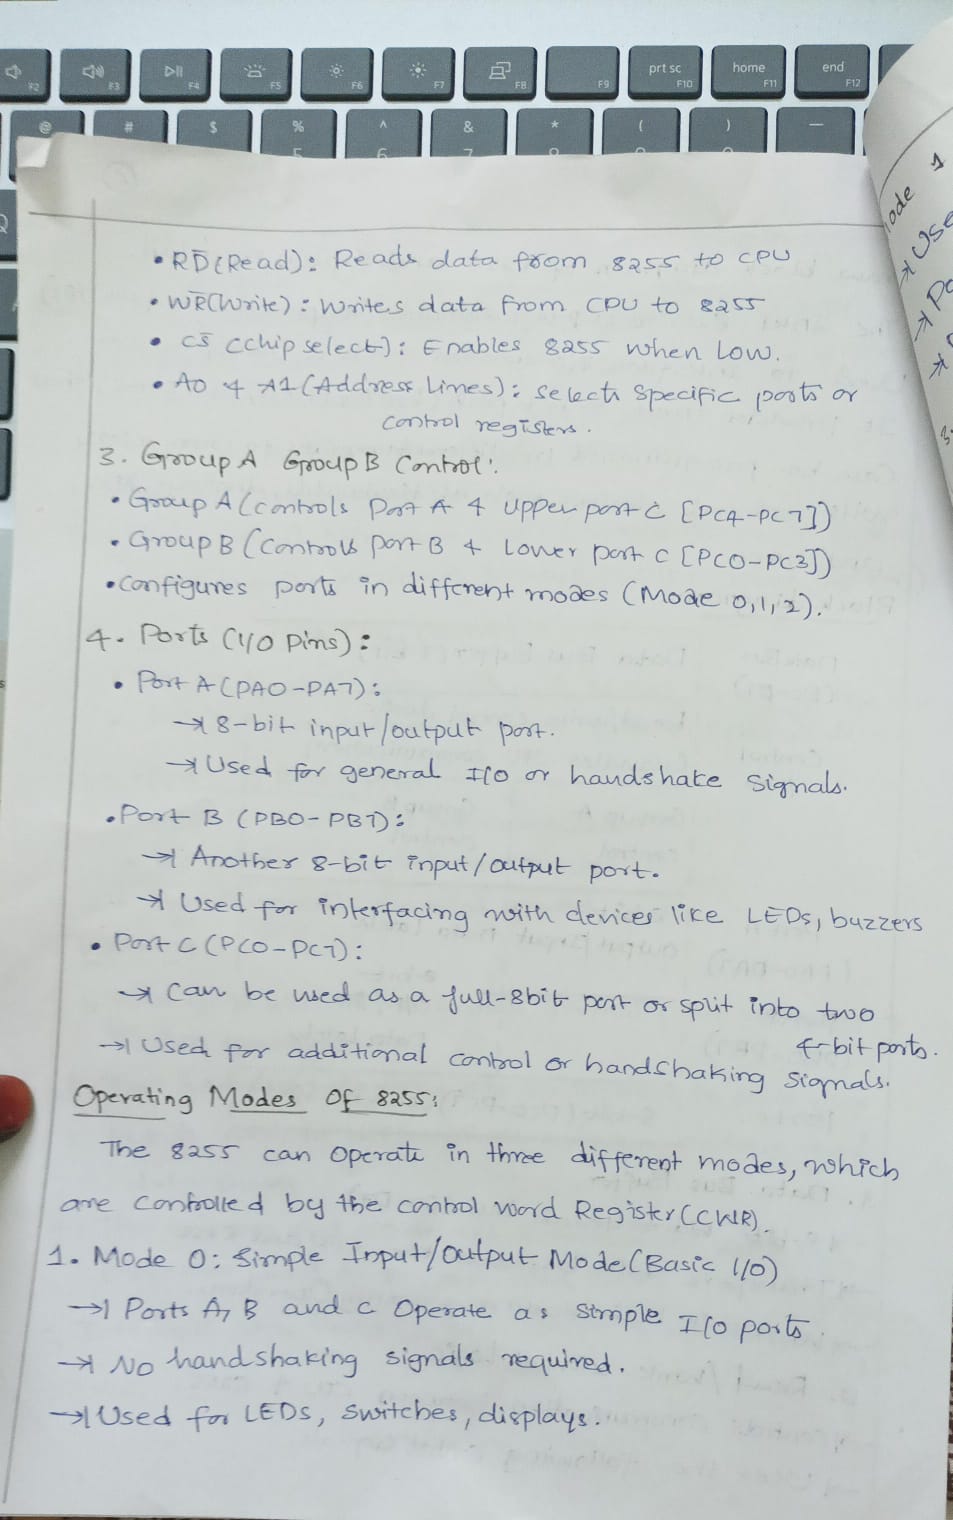 F2 F3 F4 F5 F6 F7 F8 F9 prt sc F10 home F11 end F12
@ # $ % ^ & * ( ) —
5 6 7
• RD̅(Read): Reads data from 8255 to CPU
• WR̅(Write): Writes data from CPU to 8255
• CS̅ (chip select): Enables 8255 when Low.
• A0 & A1 (Address Lines): Selects Specific ports or
control registers.
3. Group A Group B Control:
• Group A (controls Port A & Upper port C [PC4-PC7])
• Group B (Controls port B & Lower port C [PC0-PC3])
• Configures ports in different modes (Mode 0,1,2).
4. Ports (I/O Pins):
• Port A (PA0-PA7):
→ 8-bit input/output port.
→ Used for general I/O or handshake Signals.
• Port B (PB0-PB7):
→ Another 8-bit input/output port.
→ Used for interfacing with devices like LEDs, buzzers
• Port C (PC0-PC7):
→ Can be used as a full-8bit port or split into two
4-bit ports.
→ Used for additional control or handshaking signals.
Operating Modes Of 8255:
The 8255 can Operate in three different modes, which
are controlled by the control word Register (CWR).
1. Mode 0: Simple Input/Output Mode (Basic I/O)
→ Ports A, B and C Operate as Simple I/O ports
→ No handshaking signals required.
→ Used for LEDs, Switches, displays.
ode 1
→ Use
→ Po
→
3.